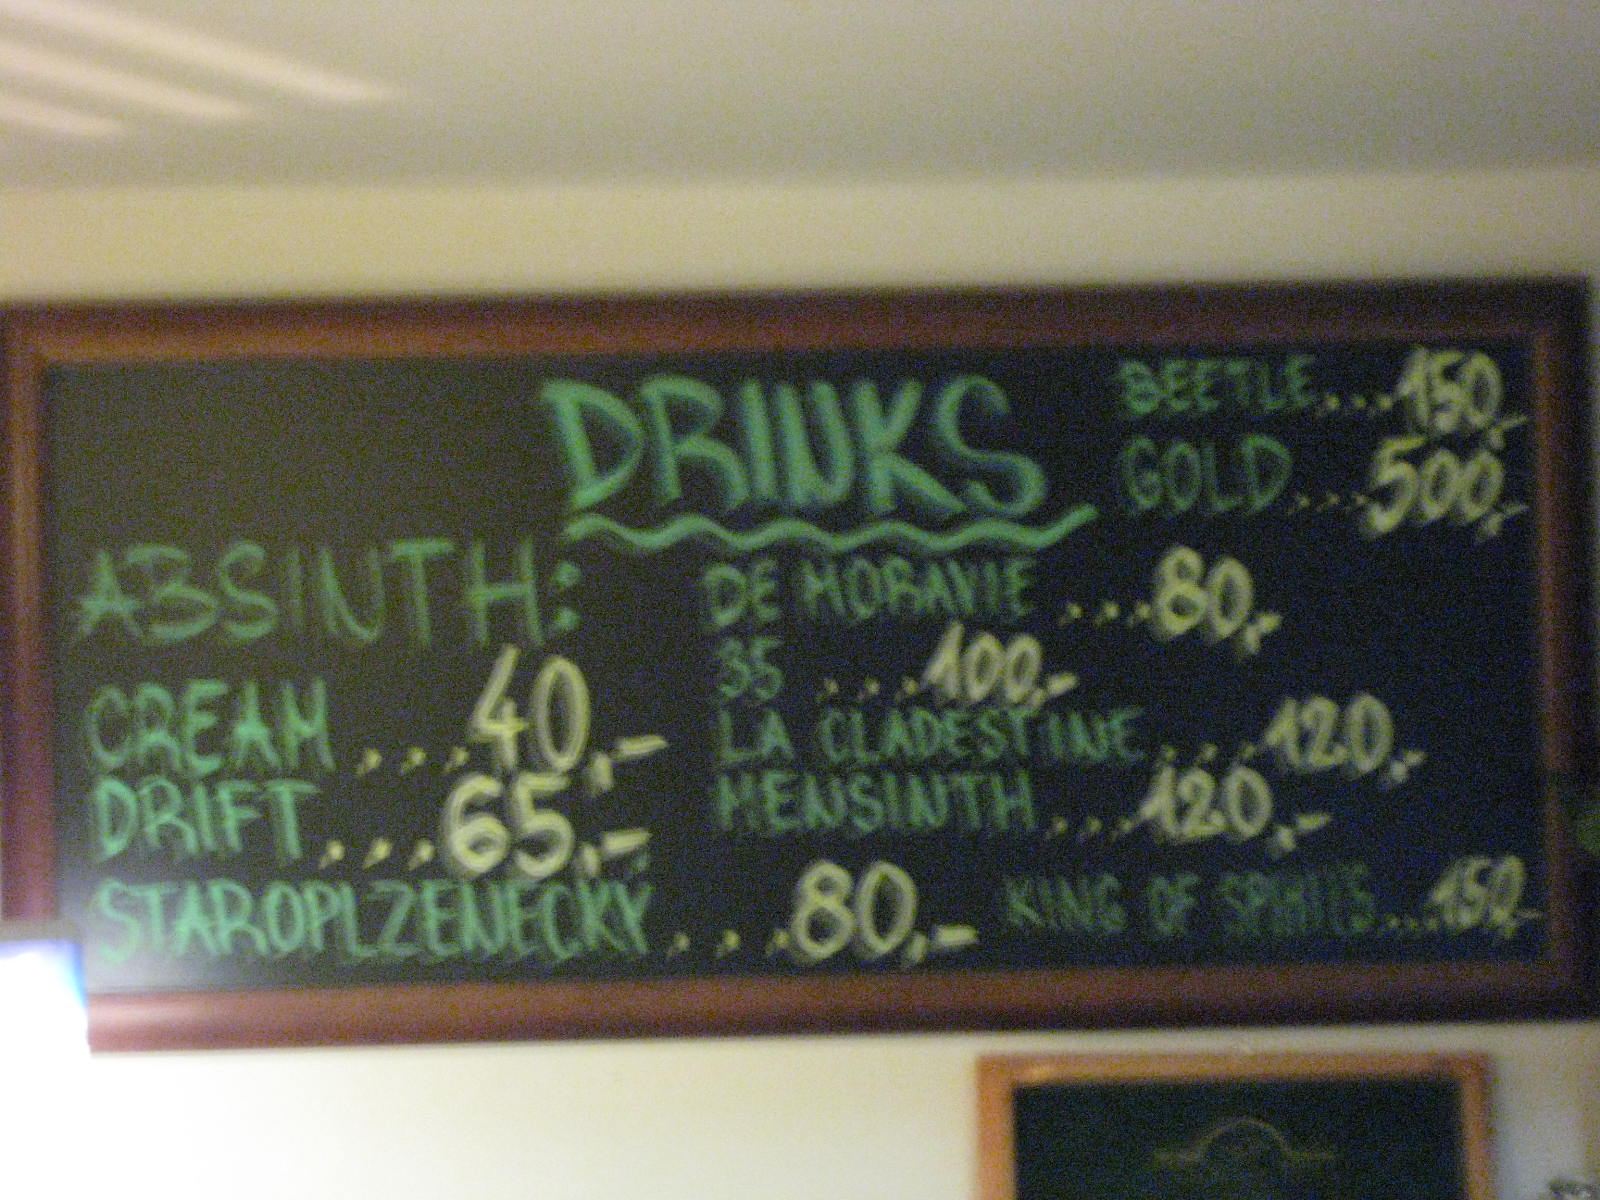 DRINKS
ABSINTH:
CREAM ....40,-
DRIFT ....65,-
STAROPLZENECKÝ ....80,-
DE MORAVIE ....80,-
35 ....100,-
LA CLADESTINE ....120,-
MENSINTH ....120,-
KING OF SPIRITS ...150,-
BEETLE ....150,-
GOLD ....500,-